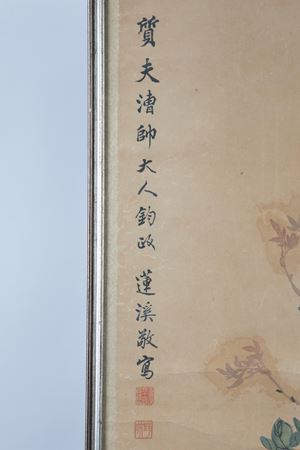 質夫漕帥大人鈞政 蓮溪敬寫